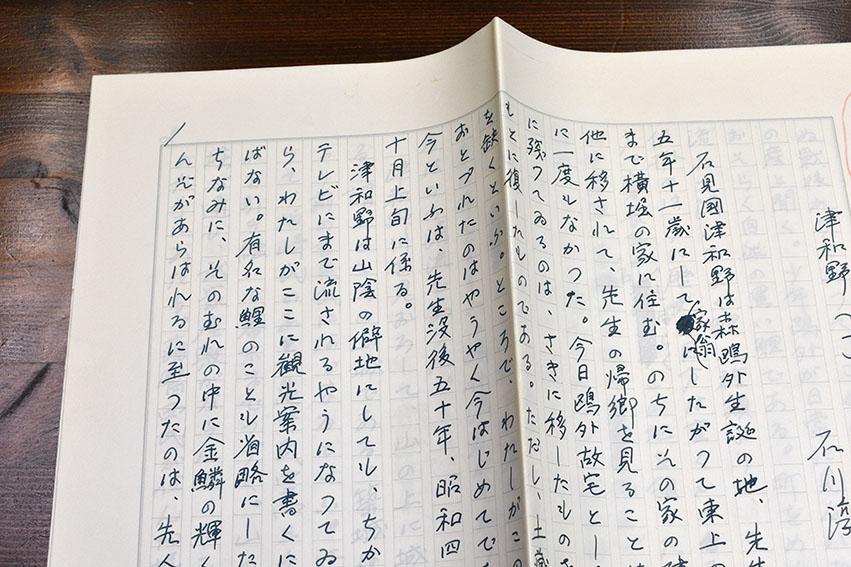 津和野 石川淳
石見國津和野は森鷗外生誕の地、先生
五年十一歳にして家翁にしたがつて東上の
まで横堀の家に住む。のちにその家の建
他に移されて、先生の帰郷を見ること
に一度もなかつた。今日鷗外故宅とし
に残つてゐるのは、さきに移したものを
もとに復したものである。ただし、土蔵
を缺くといふ。ところで、わたしがこの
おとづれたのはやうやく今はじめてで
今といふは、先生没後五十年、昭和四
十月上旬に係る。
津和野は山陰の僻地にしても、ちか
テレビにまで流されるやうになつてゐ
ら、わたしがここに観光案内を書くに
ばない。有名な鯉のことも省略にした
ちなみに、そのむれの中に金鱗の輝く
んぞがあらはれるに至つたのは、先人